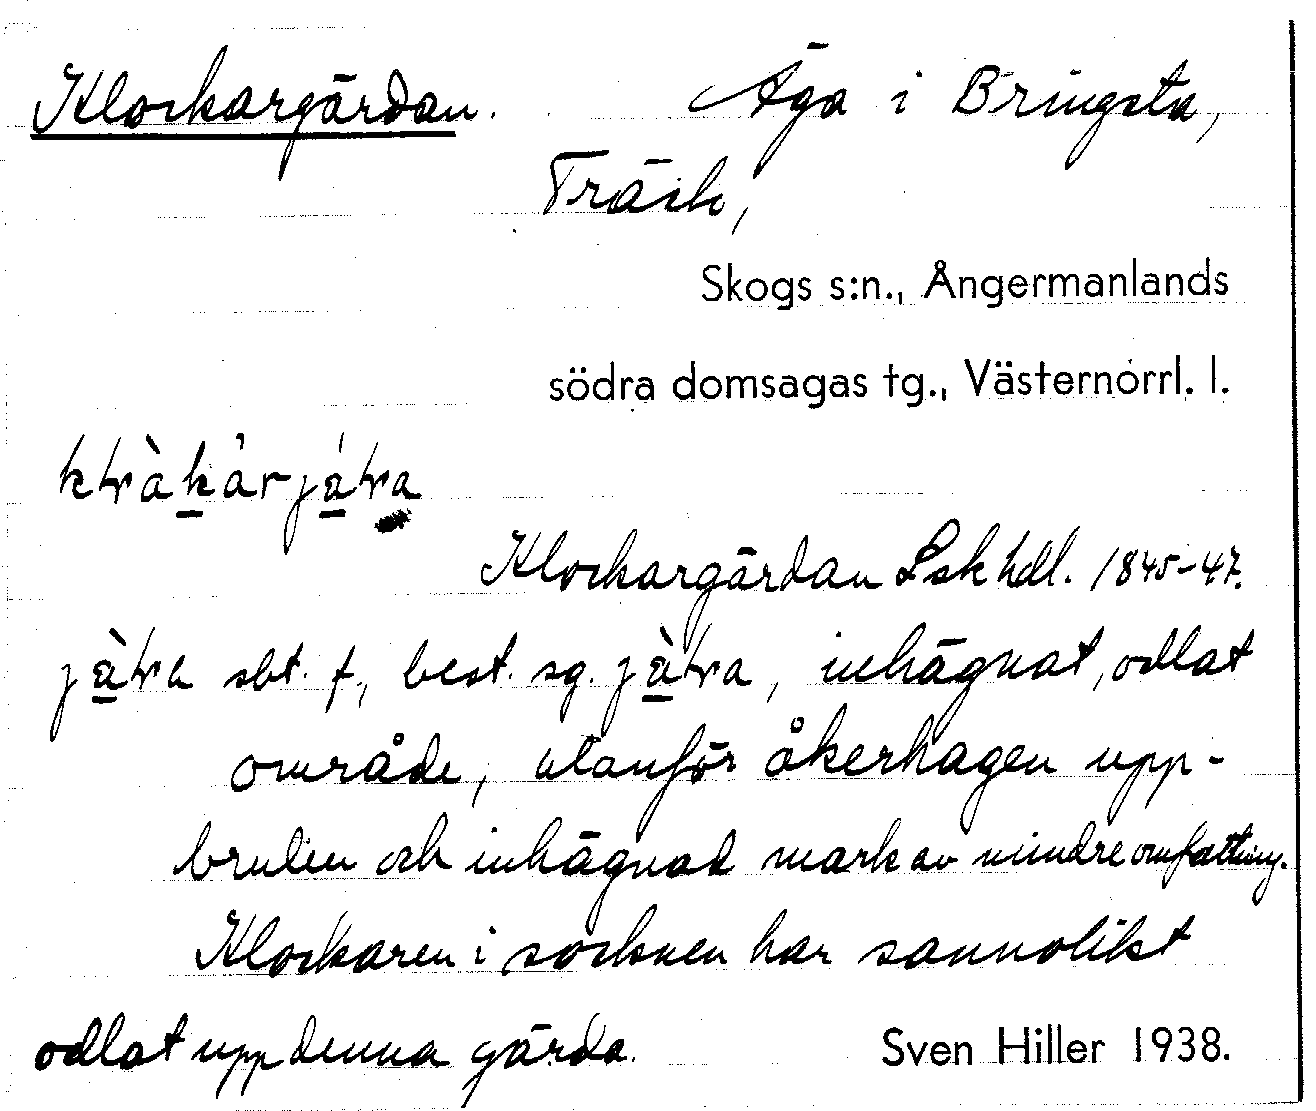 Klockargärdan. Äga i Bringsta,
Träsk,
Skogs s:n., Ångermanlands
södra domsagas tg., Västernorrl. l.
Klockargärdan Lsk hdl. 1845-47.
sbt. f., best. sg. inhägnat, odlat
område, utanför åkerhagen upp-
bruten och inhägnad mark av mindre omfattning.
Klockaren i socknen har sannolikt
odlat upp denna gärda. Sven Hiller 1938.